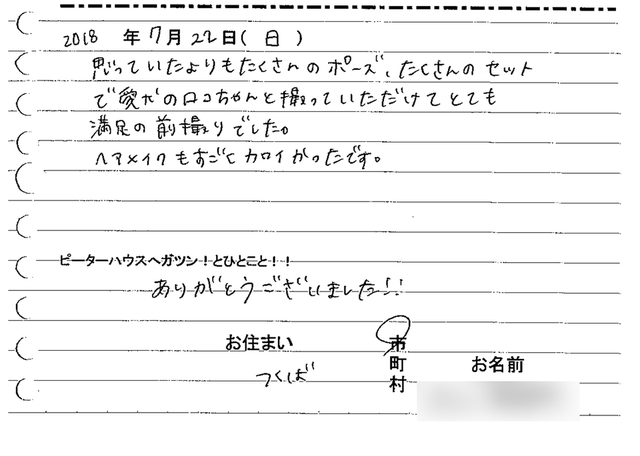 2018 年 7 月 22 日( 日 )
思っていたよりもたくさんのポーズ、たくさんのセット
で愛犬のロコちゃんと撮っていただけてとても
満足の前撮りでした。
ヘアメイクもすごくカワイかったです。
ピーターハウスへガツン!とひとこと!!
ありがとうございました!!
お住まい
つくば
市
町
村
お名前